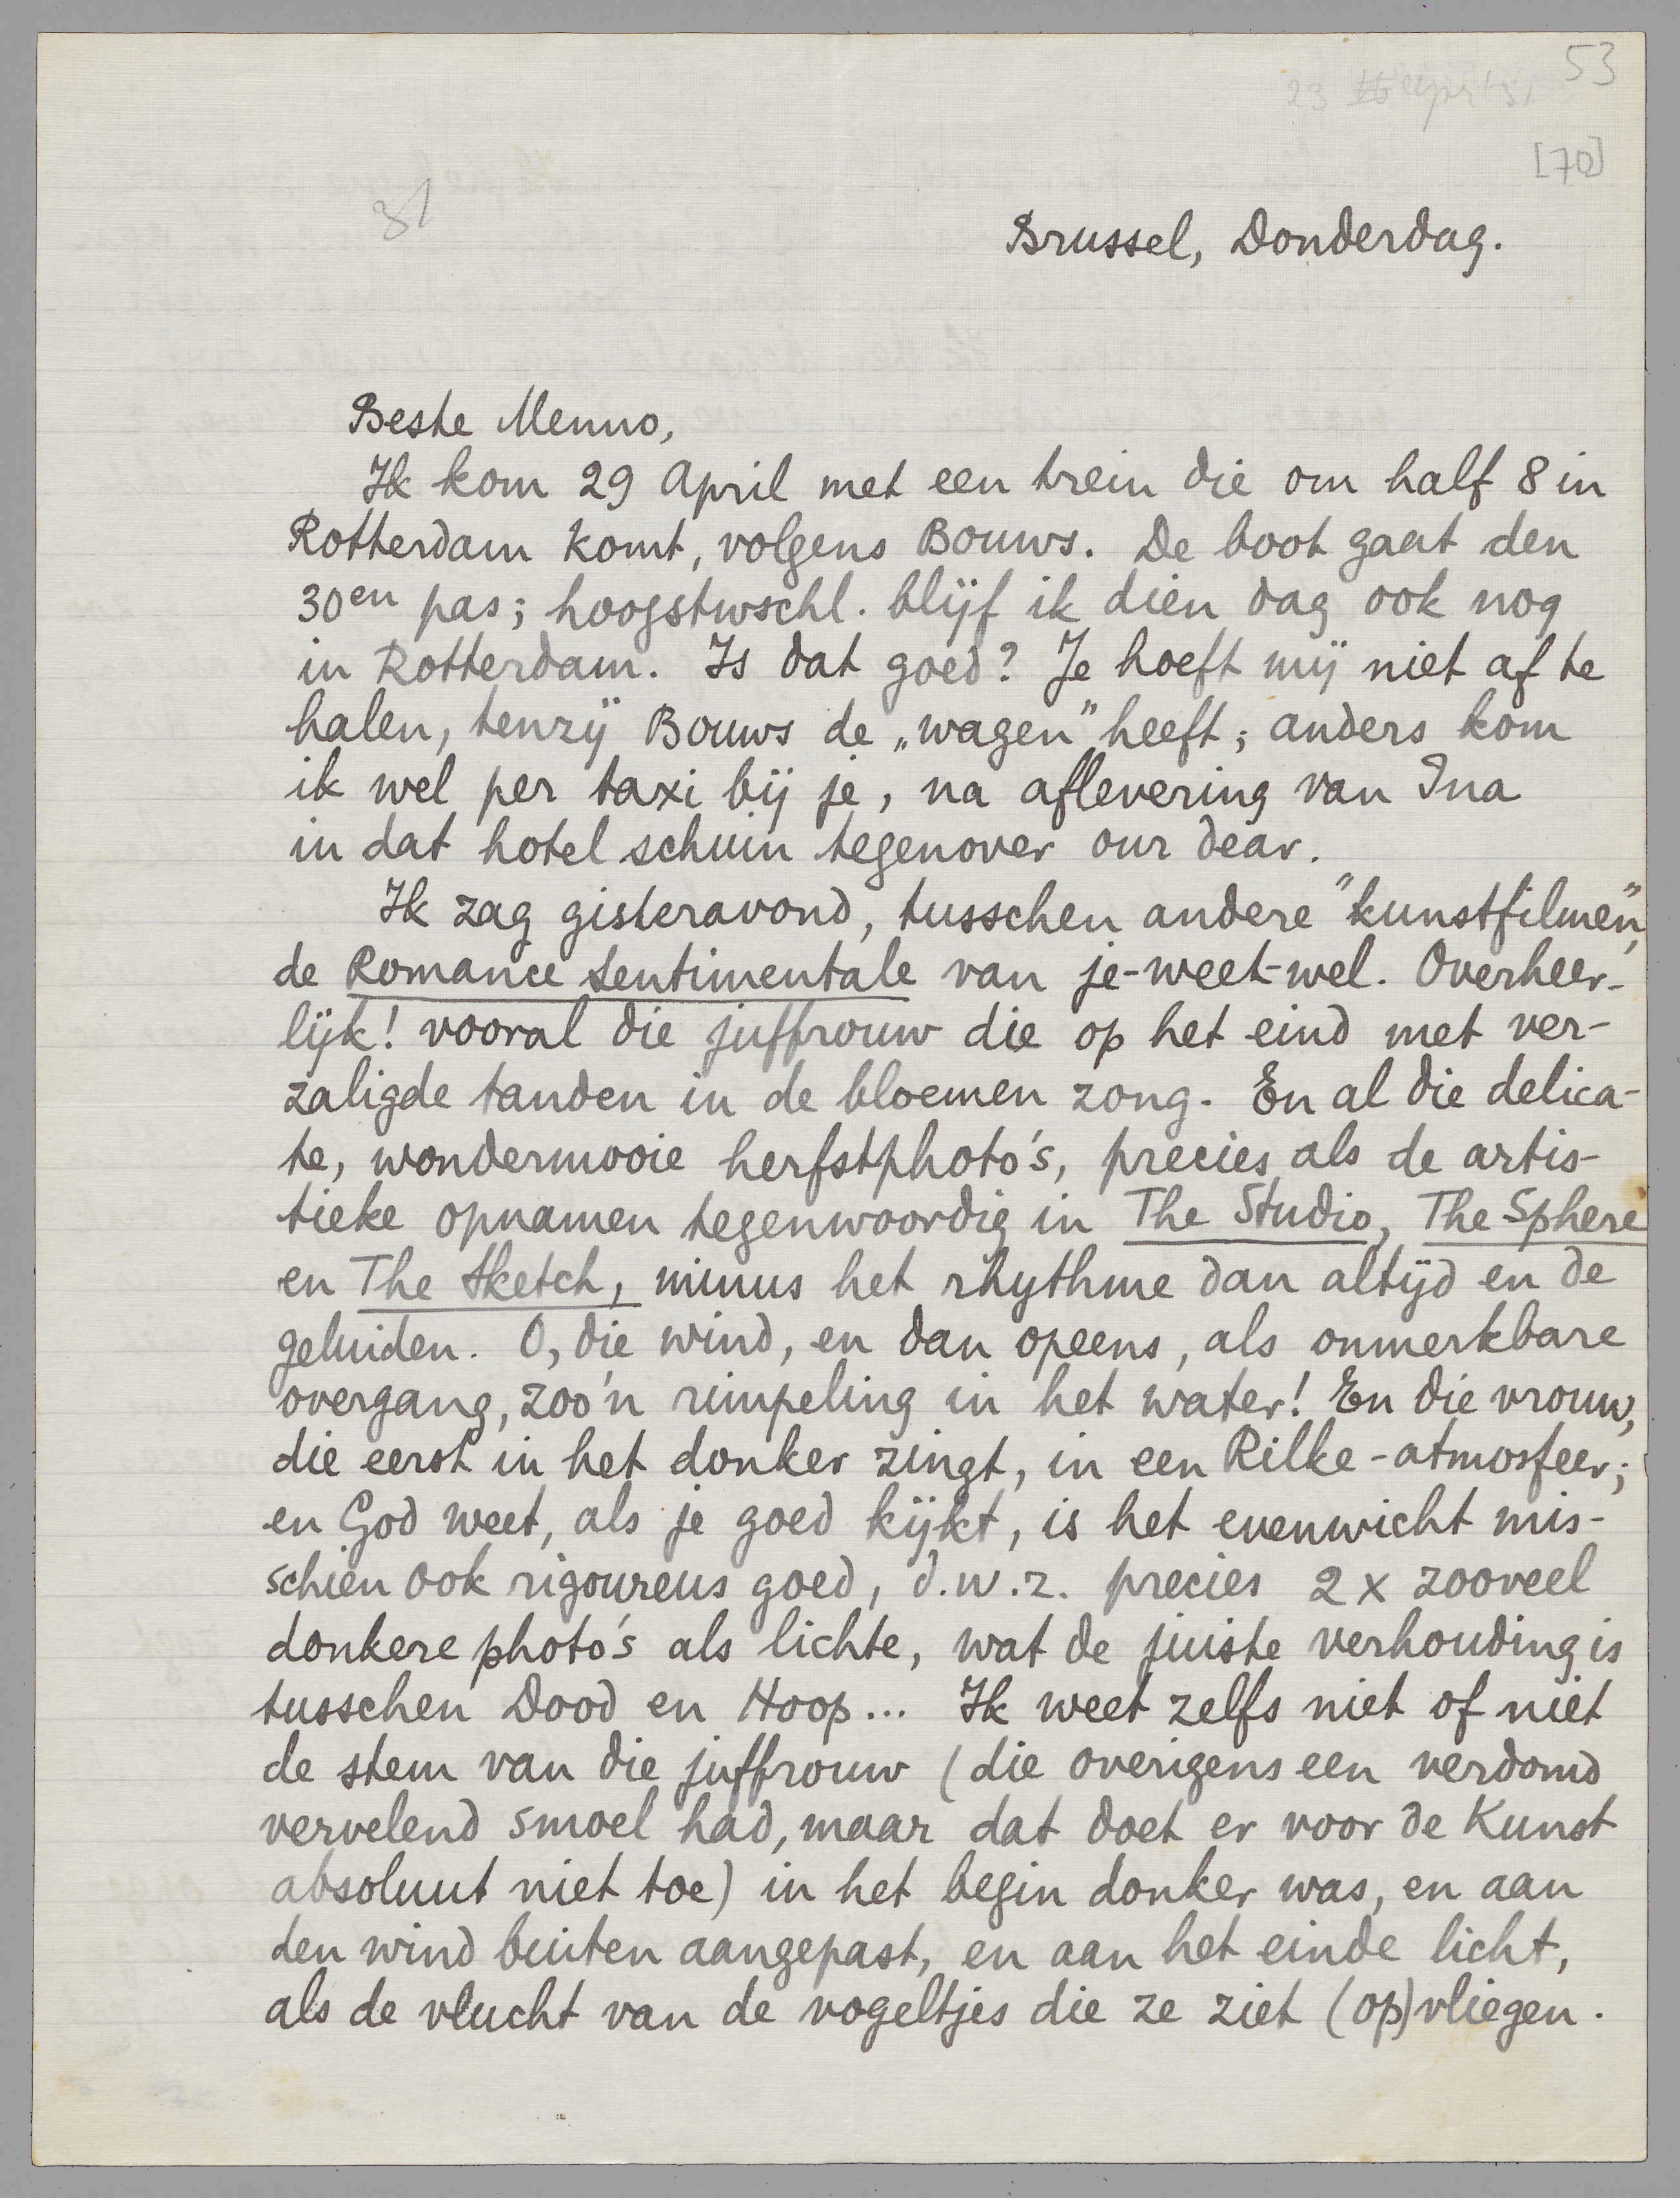 53
[70]
31
Brussel, Donderdag.
Beste Menno,
Ik kom 29 April met een trein die om half 8 in
Rotterdam komt, volgens Bouws. De boot gaat den
30en pas; hoogstwschl. blijf ik dien dag ook nog
in Rotterdam. Is dat goed? Je hoeft mij niet af te
halen, tenzij Bouws de „wagen" heeft; anders kom
ik wel per taxi bij je, na aflevering van Ina
in dat hotel schuin tegenover our dear.
Ik zag gisteravond, tusschen andere "kunstfilmen",
de Romance Sentimentale van je-weet-wel. Overheer-
lijk! vooral die juffrouw die op het eind met ver-
zaligde tanden in de bloemen zong. En al die delica-
te, wondermooie herfstphoto's, precies als de artis-
tieke opnamen tegenwoordig in The Studio, The Sphere
en The Sketch, minus het rhythme dan altijd en de
geluiden. O, die wind, en dan opeens, als onmerkbare
overgang, zoo'n rimpeling in het water! En die vrouw,
die eerst in het donker zingt, in een Rilke-atmosfeer;
en God weet, als je goed kijkt, is het evenwicht mis-
schien ook rigoureus goed, d.w.z. precies 2 x zooveel
donkere photo's als lichte, wat de juiste verhouding is
tusschen Dood en Hoop... Ik weet zelfs niet of niet
de stem van die juffrouw (die overigens een verdomd
vervelend smoel had, maar dat doet er voor de Kunst
absoluut niet toe) in het begin donker was, en aan
den wind buiten aangepast, en aan het einde licht,
als de vlucht van de vogeltjes die ze ziet (op)vliegen.